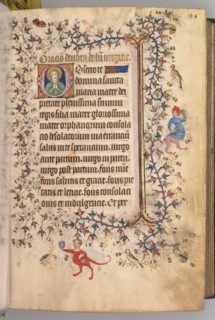 Oracio devota de
Obsecro te
domina sancta
maria mater dei
pietate plenissima summi
regis filia mater gloriosissima
mater orphanorum consola
desolatorum via errancium
salus in te sperantium. virgo
ante partum. virgo in partu.
virgo post partum. fons mie
fons salutis et gracie. fons pie
tatis et leticie. fons consolati
onis et indulgencie. Et per